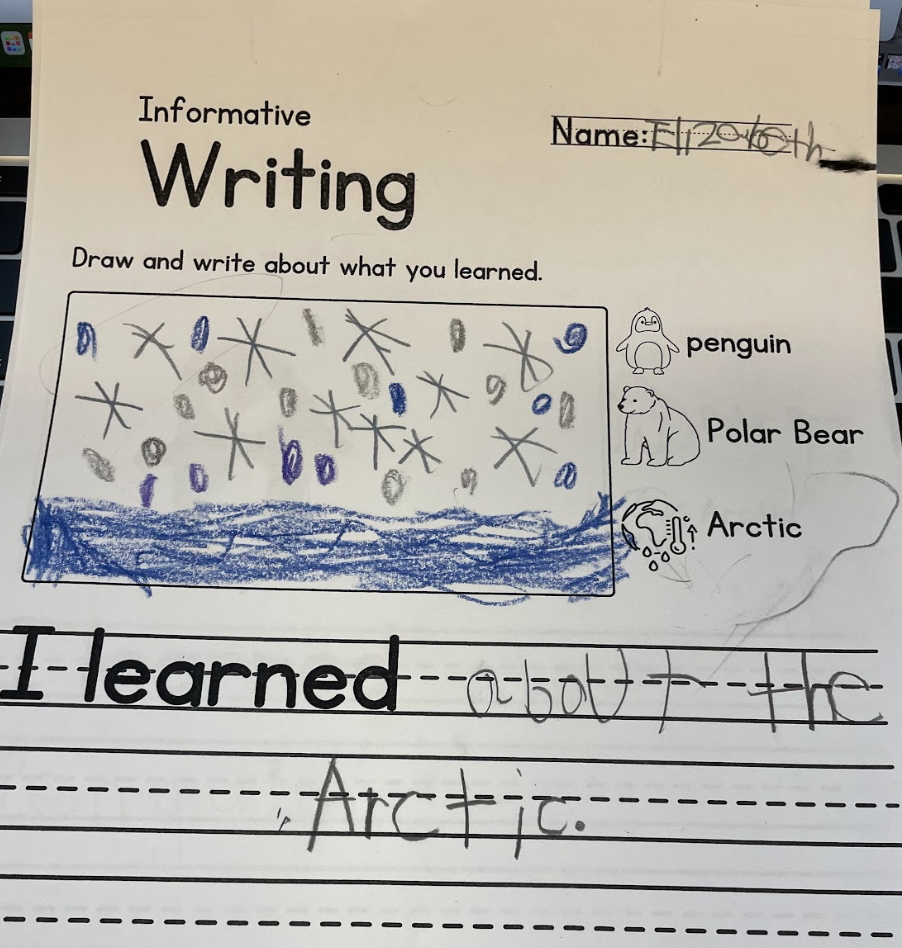 Informative
Writing
Name: Elizabeth
Draw and write about what you learned.
penguin
Polar Bear
Arctic
I learned about the
Arctic.